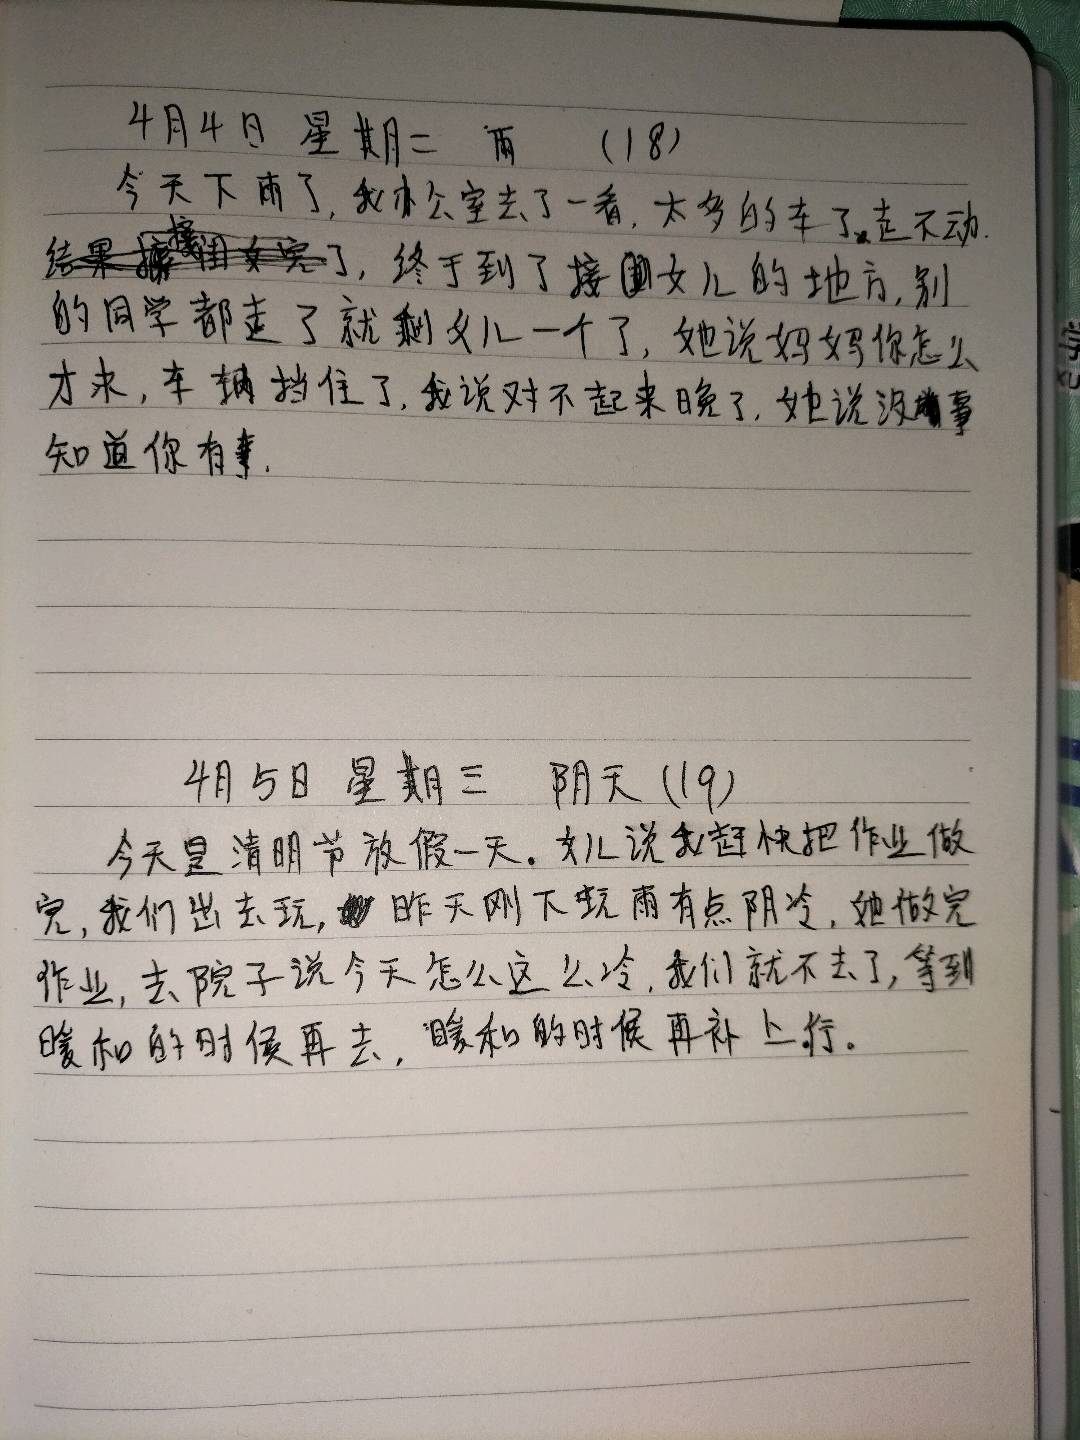 4月4日 星期二 雨 (18)
今天下雨了,我办公室去了一看,太多的车了走不动.
了,终于到了接女儿的地方,别
的同学都走了就剩女儿一个了,她说妈妈你怎么
才来,车辆挡住了,我说对不起来晚了,她说没事
知道你有事.
4月5日 星期三 阴天(19)
今天是清明节放假一天。女儿说我赶快把作业做
完,我们出去玩,昨天刚下玩雨有点阴冷,她做完
作业,去院子说今天怎么这么冷,我们就不去了,等到
暖和的时候再去,暖和的时候再补上行.
学